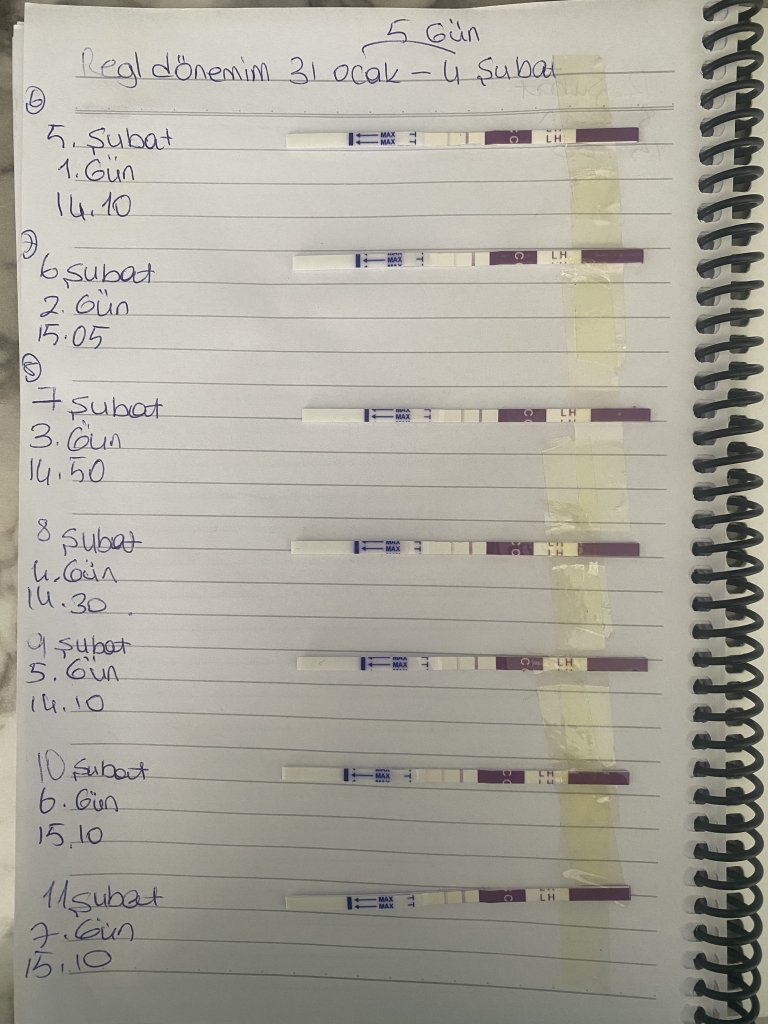 5 Gün
Regl dönemim 31 ocak - 4 Şubat
6
5. Şubat
1. Gün
14.10
MAX
MAX
T
C
LH
7
6 Şubat
2. Gün
15.05
MAX
T
C
LH
8
7 Şubat
3. Gün
14.50
MAX
MAX
T
C
LH
8 Şubat
4. Gün
14.30
MAX
MAX
T
C
LH
LH
9 Şubat
5. Gün
14.10
MAX
MAX
T
C
LH
10 Şubat
6. Gün
15.10
MAX
T
C
LH
11 Şubat
7. Gün
15.10
MAX
MAX
T
C
LH